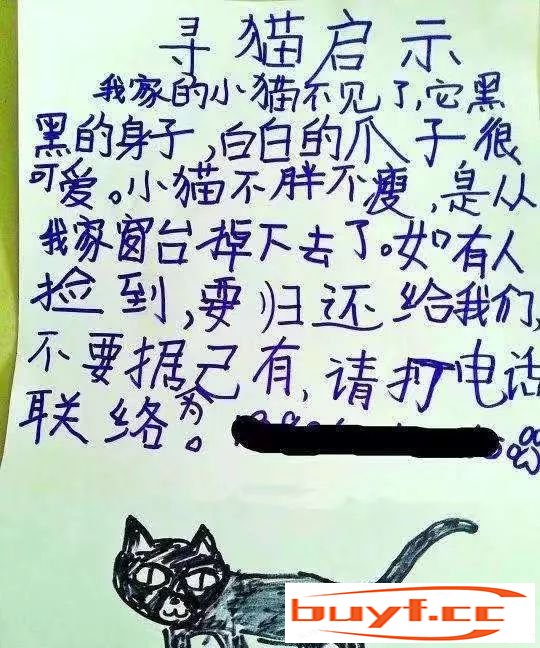 寻猫启示
我家的小猫不见了,它黑
黑的身子,白白的爪子很
可爱。小猫不胖不瘦,是从
我家窗台掉下去了。如有人
捡到,要归还给我们,
不要据为己有,请打电话
联络。
buyf.cc